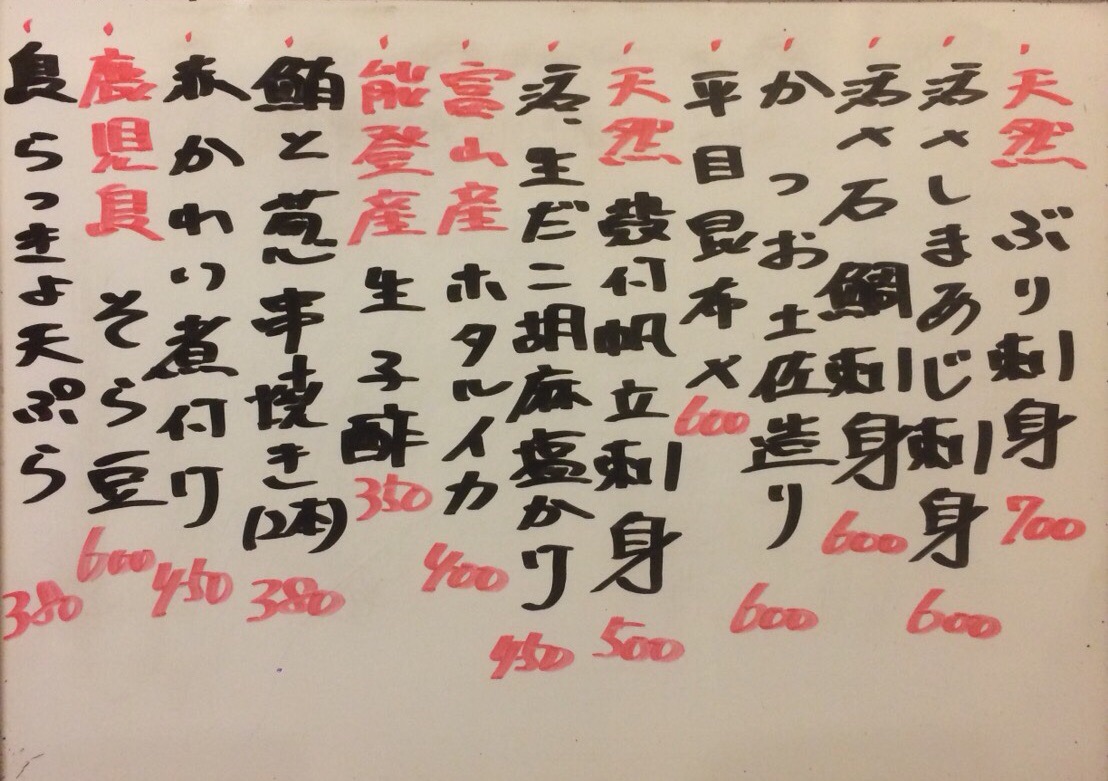 天然 ぶり刺身 700
活〆しまあじ刺身 600
活〆石鯛刺身 600
かつお土佐造り 600
平目昆布〆 600
天然 殻付帆立刺身 500
活生だこ胡麻塩かけ 450
富山産 ホタルイカ 400
能登産 生子酢 350
鮪と葱串焼き(2本) 380
赤かれい煮付け 450
鹿児島 そら豆 600
島らっきょ天ぷら 380